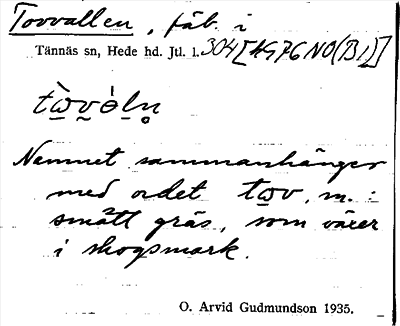 Tovvallen, fäb. i
Tännäs sn, Hede hd. Jtl. l. 304 [4976 NO(B1)]
tὼ̲v̲ə̀l̲n̥
Namnet sammanhänger
med ordet tω̲v, m. :
smått gräs, som växer
i skogsmark.
O. Arvid Gudmundson 1935.